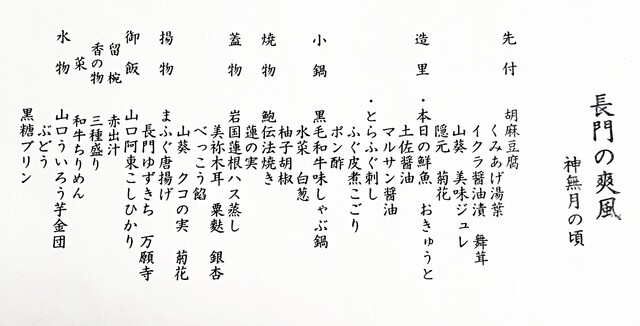 長門の爽風
神無月の頃
先付
胡麻豆腐
くみあげ湯葉
イクラ醤油漬 舞茸
山葵 美味ジュレ
隠元 菊花
造里
・本日の鮮魚 おきゅうと
土佐醤油
マルサン醤油
・とらふぐ刺し
ふぐ皮煮こごり
ポン酢
小鍋
黒毛和牛味しゃぶ鍋
水菜 白葱
柚子胡椒
焼物
鮑伝法焼き
蓮の実
蓋物
岩国蓮根ハス蒸し
美祢木耳 粟麩 銀杏
べっこう餡
山葵 クコの実 菊花
揚物
まふぐ唐揚げ
長門ゆずきち 万願寺
御飯
山口阿東こしひかり
留椀
赤出汁
香の物
三種盛り
菜
和牛ちりめん
水物
山口ういろう芋金団
ぶどう
黒糖プリン